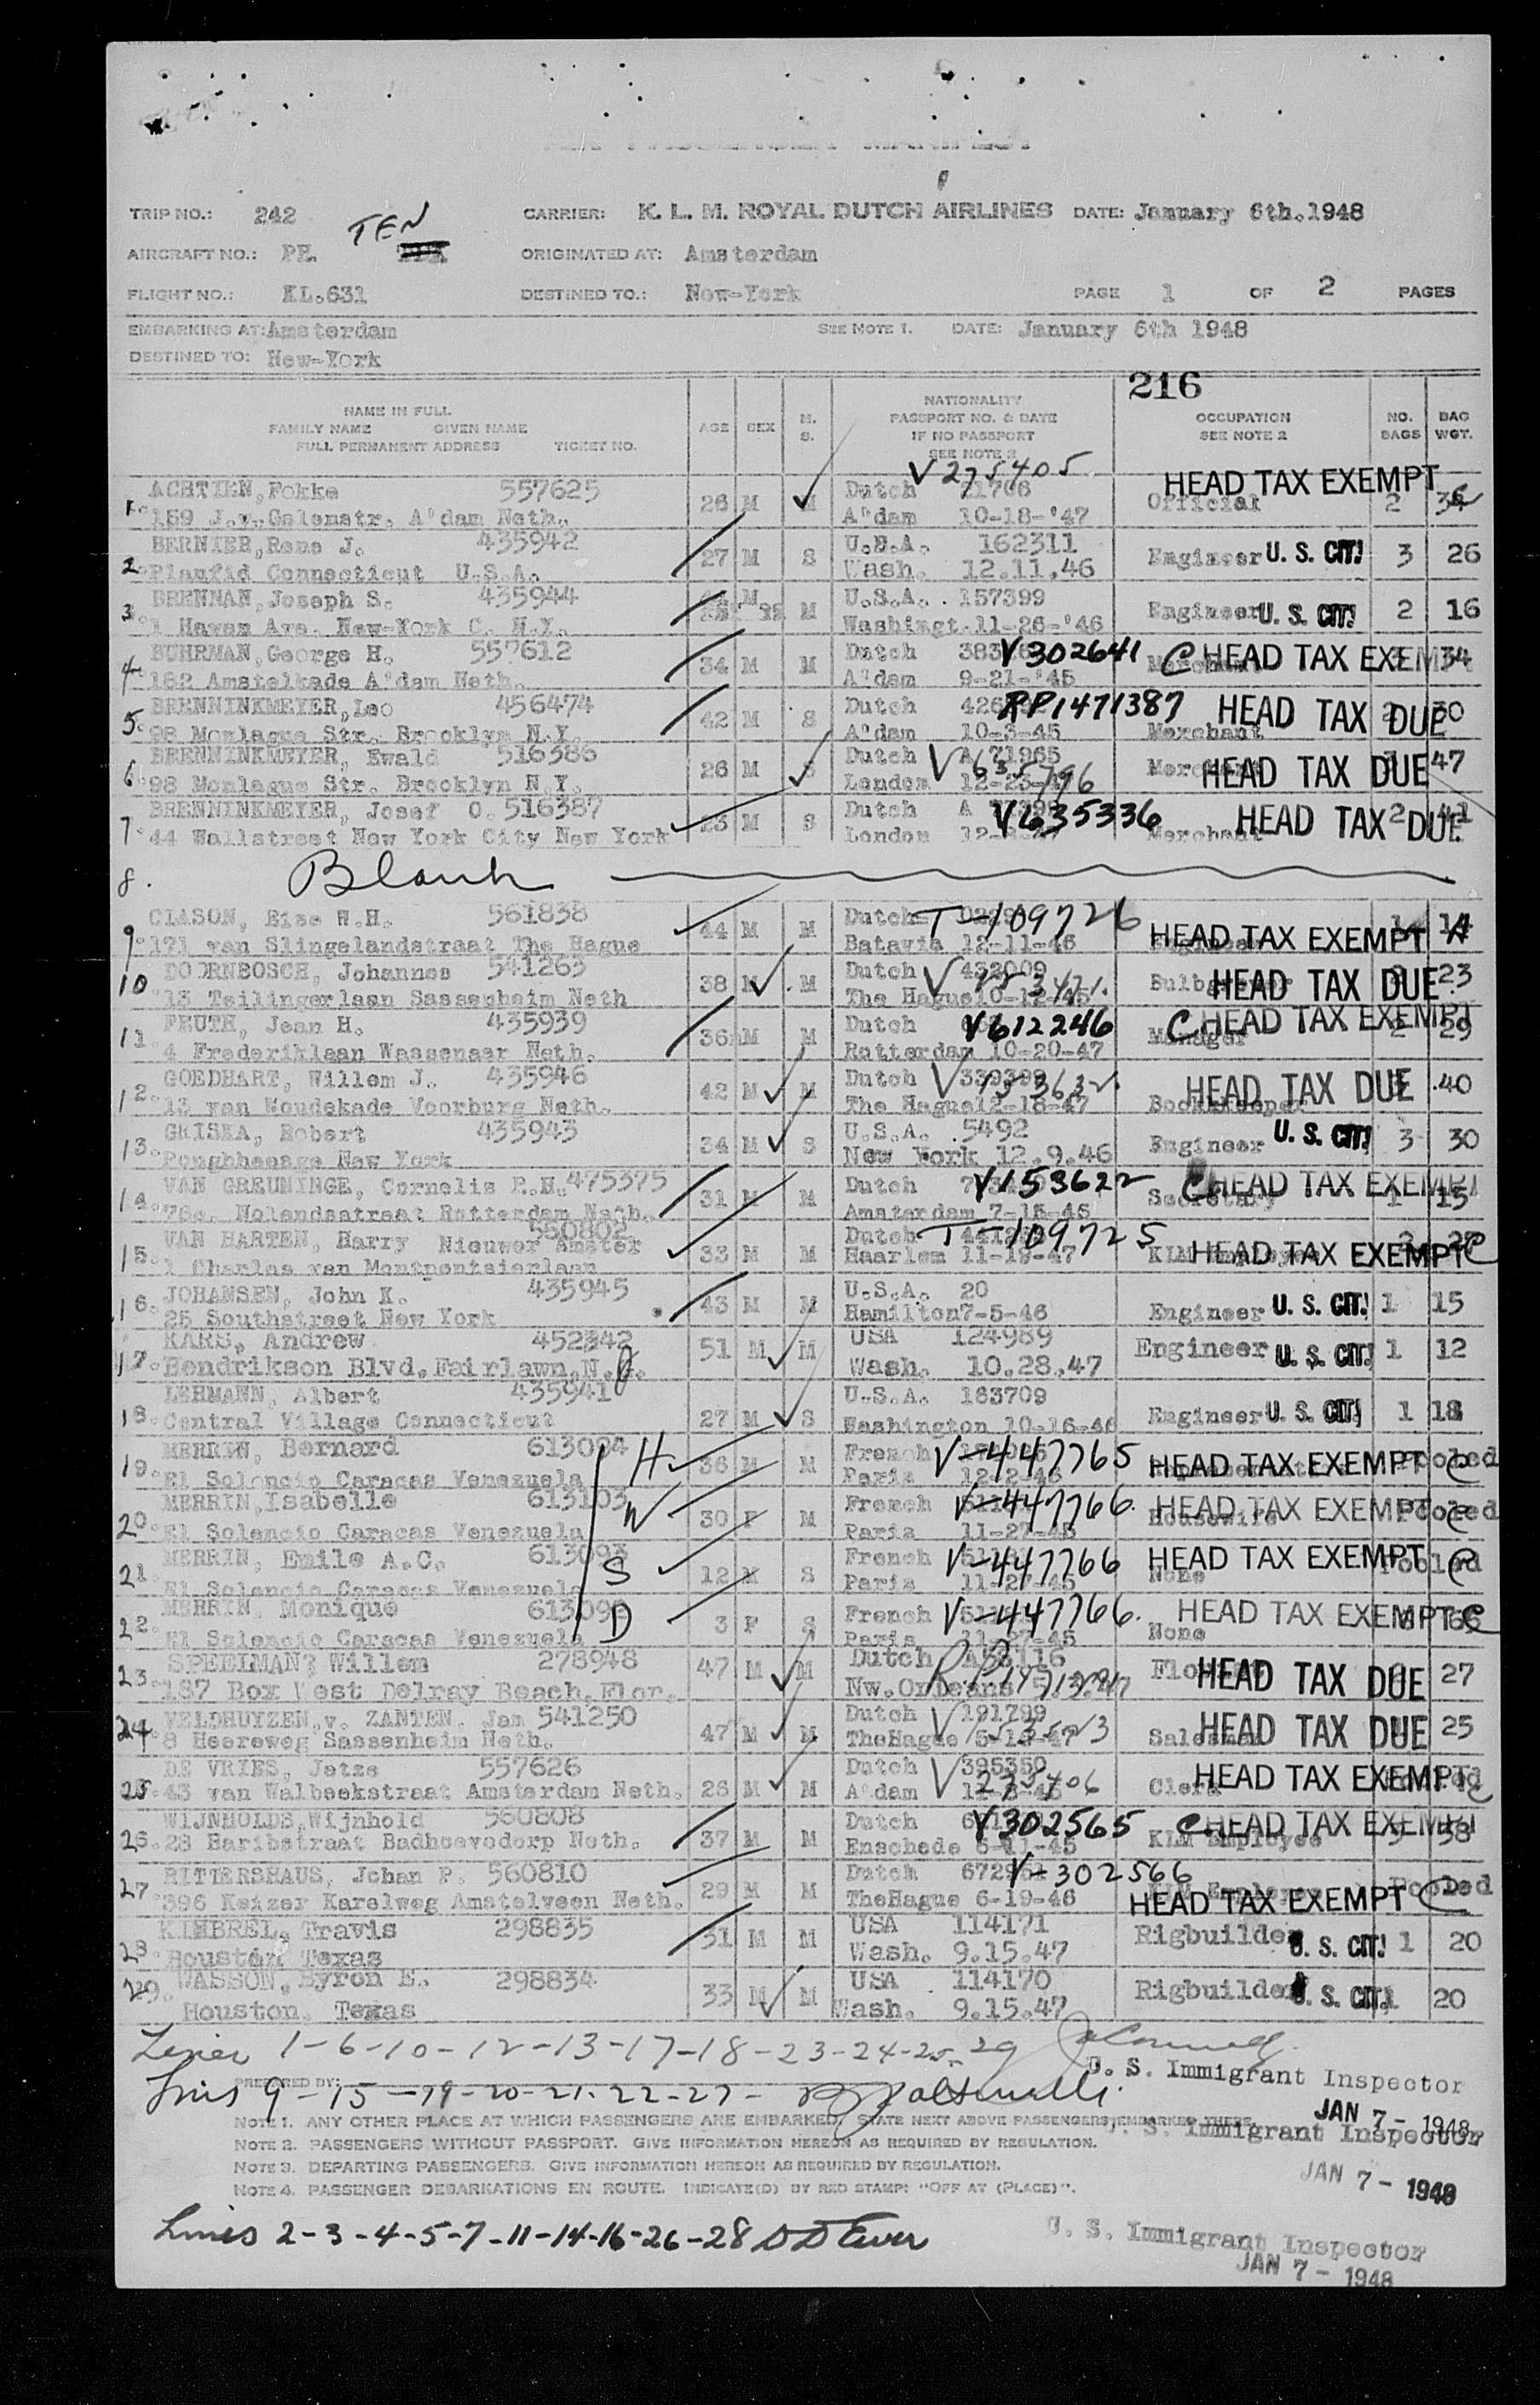 AIR PASSENGER MANIFEST
TRIP NO.: 242 TEN CARRIER: K. L. M. ROYAL DUTCH AIRLINES DATE: January 6th.1948
AIRCRAFT NO.: PH. ORIGINATED AT: Amsterdam
FLIGHT NO.: KL.631 DESTINED TO.: New-York PAGE 1 OF 2 PAGES
EMBARKING AT: Amsterdam SEE NOTE 1. DATE: January 6th 1948
DESTINED TO: New-York
216
NAME IN FULL
FAMILY NAME GIVEN NAME
FULL PERMANENT ADDRESS TICKET NO.
AGE SEX M. S.
NATIONALITY
PASSPORT NO. & DATE
IF NO PASSPORT
SEE NOTE 2
OCCUPATION
SEE NOTE 2
NO. BAGS
BAG WGT.
V 275405
1. ACHTIEN, Fokke 557625 26 M M Dutch 71706 Official HEAD TAX EXEMPT 2
159 J.v.Galenstr. A'dam Neth. A'dam 10-18-'47
2. BERNIER, Rene J. 435942 27 M S U.S.A. 162311 Engineer U. S. CIT! 3 26
Planfid Connecticut U.S.A. Wash. 12.11.46
3. BRENNAN, Joseph S. 435944 M U.S.A. 157399 Engineer U. S. CIT! 2 16
1 Haven Ave. New-York C. N.Y. Washingt. 11-26-'46
4. BUHRMAN, George H. 557612 34 M M Dutch V 302641 C HEAD TAX EXEMPT 34
182 Amstelkade A'dam Neth. A'dam 9-21-'45
5. BRENNINKMEYER, Leo 456474 42 M S Dutch RP1471387 Merchant HEAD TAX DUE 30
98 Monlague Str. Brooklyn N.Y. A'dam 10-3-45
6. BRENNINKMEYER, Ewald 516386 26 M S Dutch A/71965 V 635796 HEAD TAX DUE 47
98 Monlague Str. Brooklyn N.Y. London
7. BRENNINKMEYER, Josef O. 516387 23 M S Dutch V635336 Merchant HEAD TAX DUE 2 41
44 Wallstreet New York City New York London
8. Blank
9. CIASON, Eise W.H. 561838 44 M M Dutch T-109726 HEAD TAX EXEMPT 14
171 van Slingelandstraat The Hague Batavia 12-11-46
10 DOORNBOSCH, Johannes 541263 38 M M Dutch 432009 HEAD TAX DUE 23
13 Teilingerlaan Sassenheim Neth The Hague
11. FEUTH, Jean H. 435939 36 M M Dutch V612246 Manager C HEAD TAX EXEMPT 2 29
4 Frederiklaan Wassenaar Neth. Rotterdam 10-20-47
12. GOEDHART, Willem J. 435946 42 M M Dutch 339399 V 153632 Bookkeeper HEAD TAX DUE 40
13 van Woudekade Voorburg Neth. The Hague 12-18-47
13. GRISKA, Robert 435943 34 M S U.S.A. 5492 Engineer U. S. CIT! 3 30
Poughheepge New York New York 12.9.46
14. VAN GREUNINGE, Cornelis P.H. 475375 31 M M Dutch V153622 Secretary C HEAD TAX EXEMPT 1 15
Nolandsstraat Rotterdam Neth. Amsterdam 7-15-46
15. VAN HARTEN, Harry Nieuwer Amster 560802 33 M M Dutch T-109725 HEAD TAX EXEMPT C
1 Charles van Montpontsierlaan Haarlem 11-19-47
16. JOHANSEN, John K. 435945 43 M M U.S.A. 20 Engineer U. S. CIT! 1 15
25 Southstreet New York Hamilton 7-5-46
17. KARS, Andrew 452342 51 M M USA 124989 Engineer U. S. CIT! 1 12
Hendrikson Blvd. Fairlawn. N.J. Wash. 10.28.47
18. LEHMANN, Albert 435941 27 M S U.S.A. 163709 Engineer U. S. CIT! 1 18
Central Village Connecticut Washington 10-16-46
19. MERRIN, Bernard 613094 H 36 M M French V-447765 HEAD TAX EXEMPT C Pooled
El Solencio Caracas Venezuela Paris 12-2-46
20. MERRIN, Isabelle 613103 W 30 F M French V-447766. Housewife HEAD TAX EXEMPT C Pooled
El Solencio Caracas Venezuela Paris 11-27-45
21. MERRIN, Emile A.C. 613093 S 12 M S French V-447766 None HEAD TAX EXEMPT C Pooled
El Solencio Caracas Venezuela Paris 11-27-45
22. MERRIN, Monique D 3 F S French V-447766. None HEAD TAX EXEMPT C 66
El Solencio Caracas Venezuela Paris 11-27-45
23. SPEELMAN, Willem 278948 47 M M Dutch HEAD TAX DUE 27
187 Box West Delray Beach. Flor. Nw. Orleans
24. VELDHUYZEN, v. ZANTEN, Jan 541250 47 M M Dutch 191799 Salesman HEAD TAX DUE 25
8 Heereweg Sassenheim Neth. TheHague
25. DE VRIES, Jetze 557626 26 M M Dutch 395350 V 275406 Clerk HEAD TAX EXEMPT C
43 van Walbeekstraat Amsterdam Neth. A'dam
26. WIJNHOLDS, Wijnhold 560808 37 M M Dutch V302565 KLM Employee C HEAD TAX EXEMPT 38
28 Haribstraat Badhoevedorp Neth. Enschede
27. RITTERSHAUS, Johan P. 560810 29 M M Dutch V-302566 KLM Employee HEAD TAX EXEMPT C Pooled
396 Keizer Karelweg Amstelveen Neth. TheHague 6-19-46
28. KIMBREL, Travis 298835 31 M M USA 114171 Rigbuilder U. S. CIT! 1 20
Houston Texas Wash. 9.15.47
29. WASSON, Byron E. 298834 33 M M USA 114170 Rigbuilder U. S. CIT! 1 20
Houston, Texas Wash. 9.15.47
Lines 1-6-10-12-13-17-18-23-24-25-29
U. S. Immigrant Inspector
PREPARED BY:
Lines 9-15-19-20-21-22-27-
JAN 7 - 1948
NOTE 1. ANY OTHER PLACE AT WHICH PASSENGERS ARE EMBARKED, STATE NEXT ABOVE PASSENGERS EMBARKED THERE.
U. S. Immigrant Inspector
NOTE 2. PASSENGERS WITHOUT PASSPORT. GIVE INFORMATION HEREON AS REQUIRED BY REGULATION.
NOTE 3. DEPARTING PASSENGERS. GIVE INFORMATION HEREON AS REQUIRED BY REGULATION.
JAN 7 - 1948
NOTE 4. PASSENGER DEBARKATIONS EN ROUTE. INDICATE(D) BY RED STAMP: "OFF AT (PLACE)".
Lines 2-3-4-5-7-11-14-16-26-28
U. S. Immigrant Inspector
JAN 7 - 1948